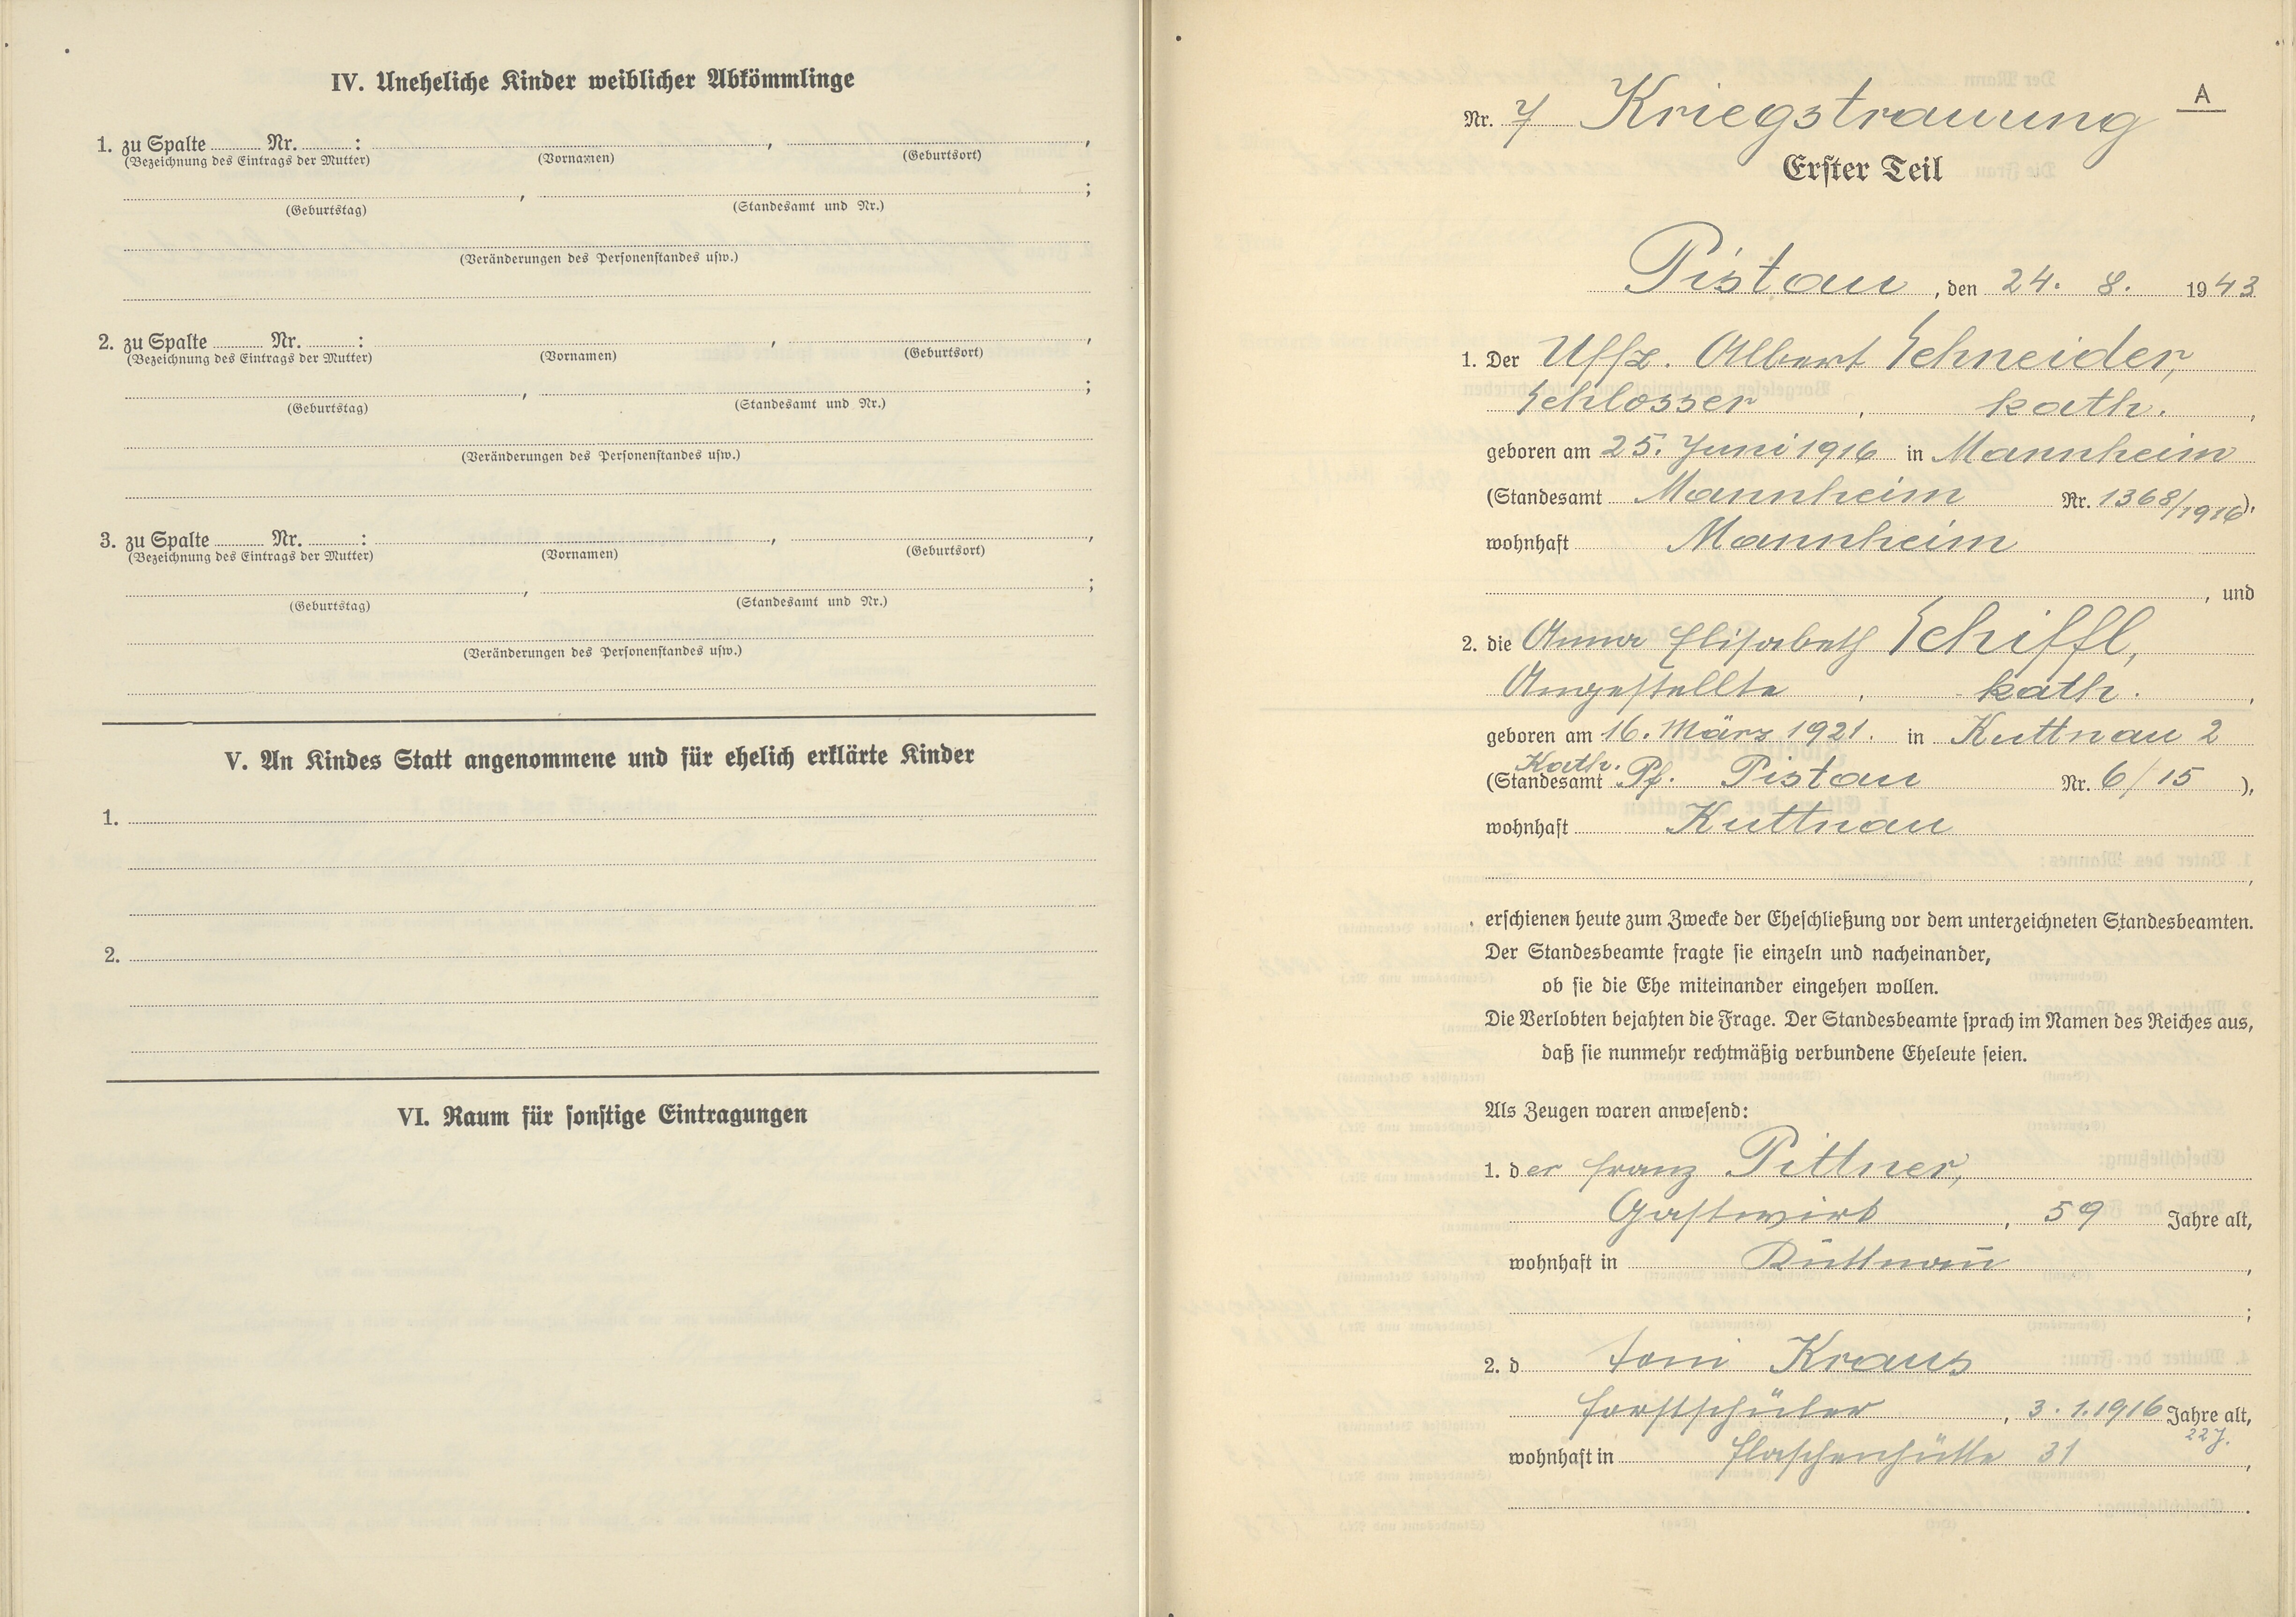 IV. Uneheliche Kinder weiblicher Abkömmlinge
1. zu Spalte ........ Nr. ........ : ........ , ........ ,
(Bezeichnung des Eintrags der Mutter) (Vornamen) (Geburtsort)
........ , ........ ;
(Geburtstag) (Standesamt und Nr.)
(Veränderungen des Personenstandes usw.)
2. zu Spalte ........ Nr. ........ : ........ , ........ ,
(Bezeichnung des Eintrags der Mutter) (Vornamen) (Geburtsort)
........ , ........ ;
(Geburtstag) (Standesamt und Nr.)
(Veränderungen des Personenstandes usw.)
3. zu Spalte ........ Nr. ........ : ........ , ........ ,
(Bezeichnung des Eintrags der Mutter) (Vornamen) (Geburtsort)
........ , ........ ;
(Geburtstag) (Standesamt und Nr.)
(Veränderungen des Personenstandes usw.)
V. An Kindes Statt angenommene und für ehelich erklärte Kinder
1.
2.
VI. Raum für sonstige Eintragungen
A
Nr. 7 Kriegstrauung
Erster Teil
Pistau, den 24. 8. 1943
1. Der Uffz. Albert Schneider,
Schlosser, kath.,
geboren am 25. Juni 1916 in Mannheim
(Standesamt Mannheim Nr. 1368/1916),
wohnhaft Mannheim
, und
2. die Anna Elisabeth Schiffl,
Angestellte, kath.,
geboren am 16. März 1921. in Kuttnau 2
Kath.
(Standesamt Pf. Pistau Nr. 6/15),
wohnhaft Kuttnau
,
erschienen heute zum Zwecke der Eheschließung vor dem unterzeichneten Standesbeamten.
Der Standesbeamte fragte sie einzeln und nacheinander,
ob sie die Ehe miteinander eingehen wollen.
Die Verlobten bejahten die Frage. Der Standesbeamte sprach im Namen des Reiches aus,
daß sie nunmehr rechtmäßig verbundene Eheleute seien.
Als Zeugen waren anwesend:
1. der Franz Pittner,
Gastwirt, 59 Jahre alt,
wohnhaft in Kuttnau,
;
2. d Toni Kraus
Forstschüler, 3.1.1916 Jahre alt,
22 J.
wohnhaft in Flaschenhütte 31,
.